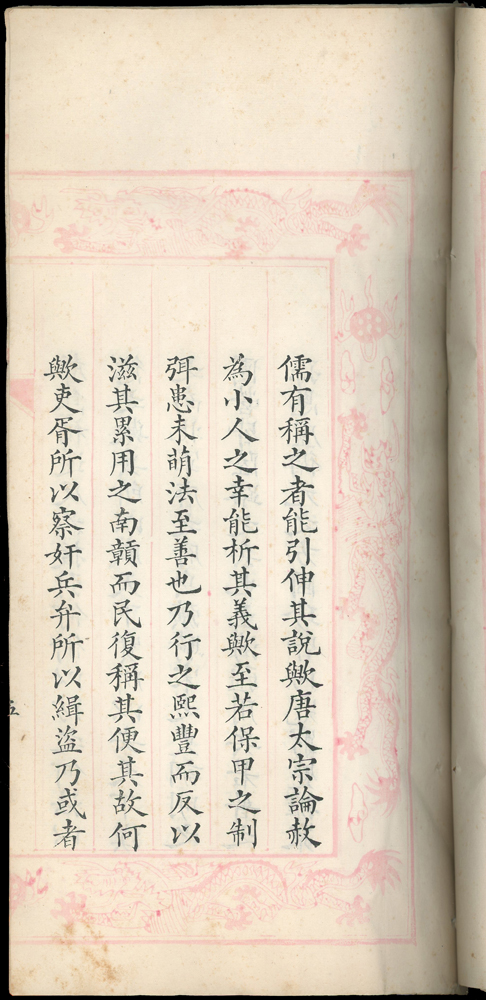 儒有稱之者能引伸其說歟唐太宗論赦
為小人之幸能析其義歟至若保甲之制
弭患未萌法至善也乃行之熙豐而反以
滋其累用之南贛而民復稱其便其故何
歟吏胥所以察奸兵弁所以緝盜乃或者
五